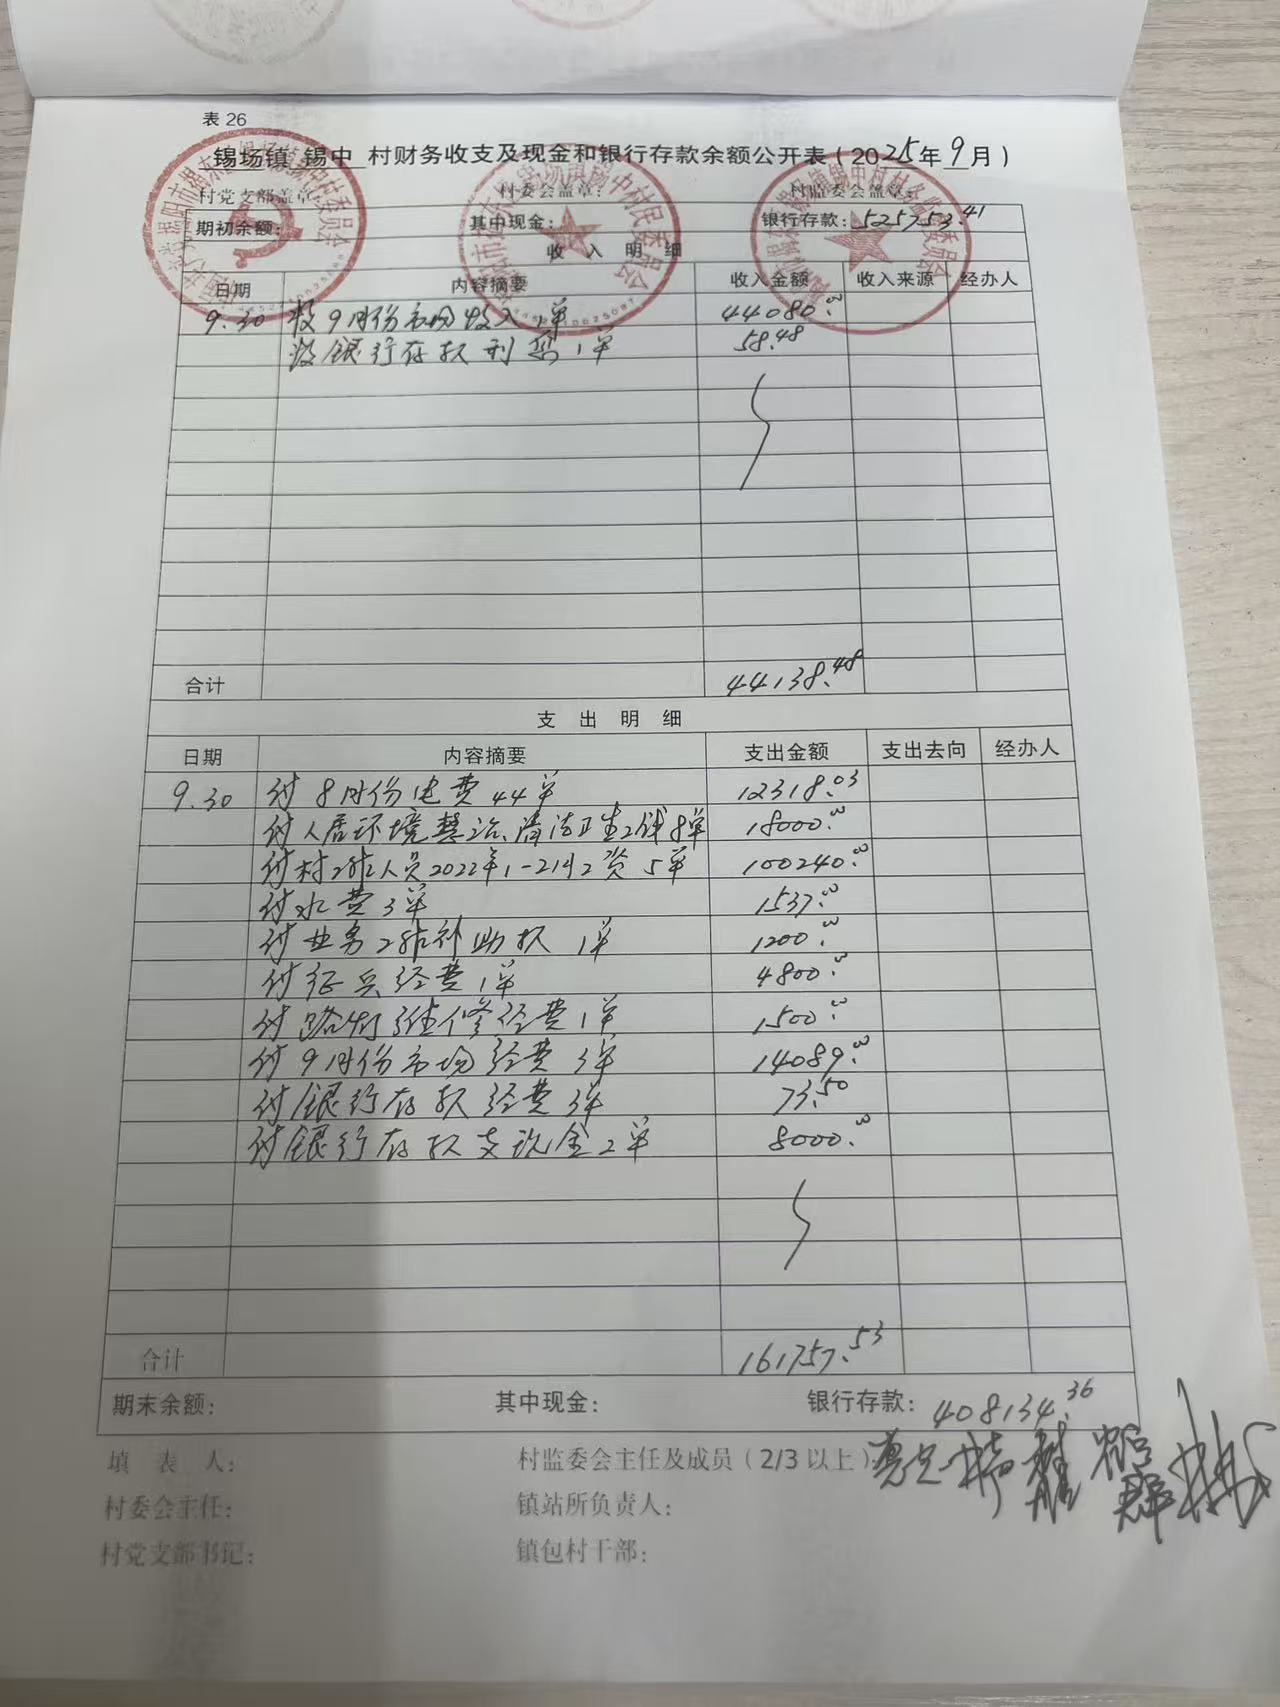 表 26
锡场镇 锡中 村财务收支及现金和银行存款余额公开表(2025年9月)
村党支部盖章: 村委会盖章: 村监委会盖章:
期初余额: 其中现金: 银行存款: 525753.41
收 入 明 细
日期 内容摘要 收入金额 收入来源 经办人
9.30 收9月份市场收入1单 44080.00
收银行存款利息1单 58.48
合计 44138.48
支 出 明 细
日期 内容摘要 支出金额 支出去向 经办人
9.30 付8月份电费44单 12318.03
付人居环境整治、清洁卫生工钱8单 18000.00
付村工作人员2022年1-2月工资5单 100240.00
付水费3单 1537.00
付业务工作补助款1单 1200.00
付征兵经费1单 4800.00
付路灯维修经费1单 1500.00
付9月份市场经费3单 14089.00
付银行存款经费3单 73.50
付银行存款支现金2单 8000.00
合计 161757.53
期末余额: 其中现金: 银行存款: 408134.36
填 表 人: 村监委会主任及成员(2/3以上)
村委会主任: 镇站所负责人:
村党支部书记: 镇包村干部: